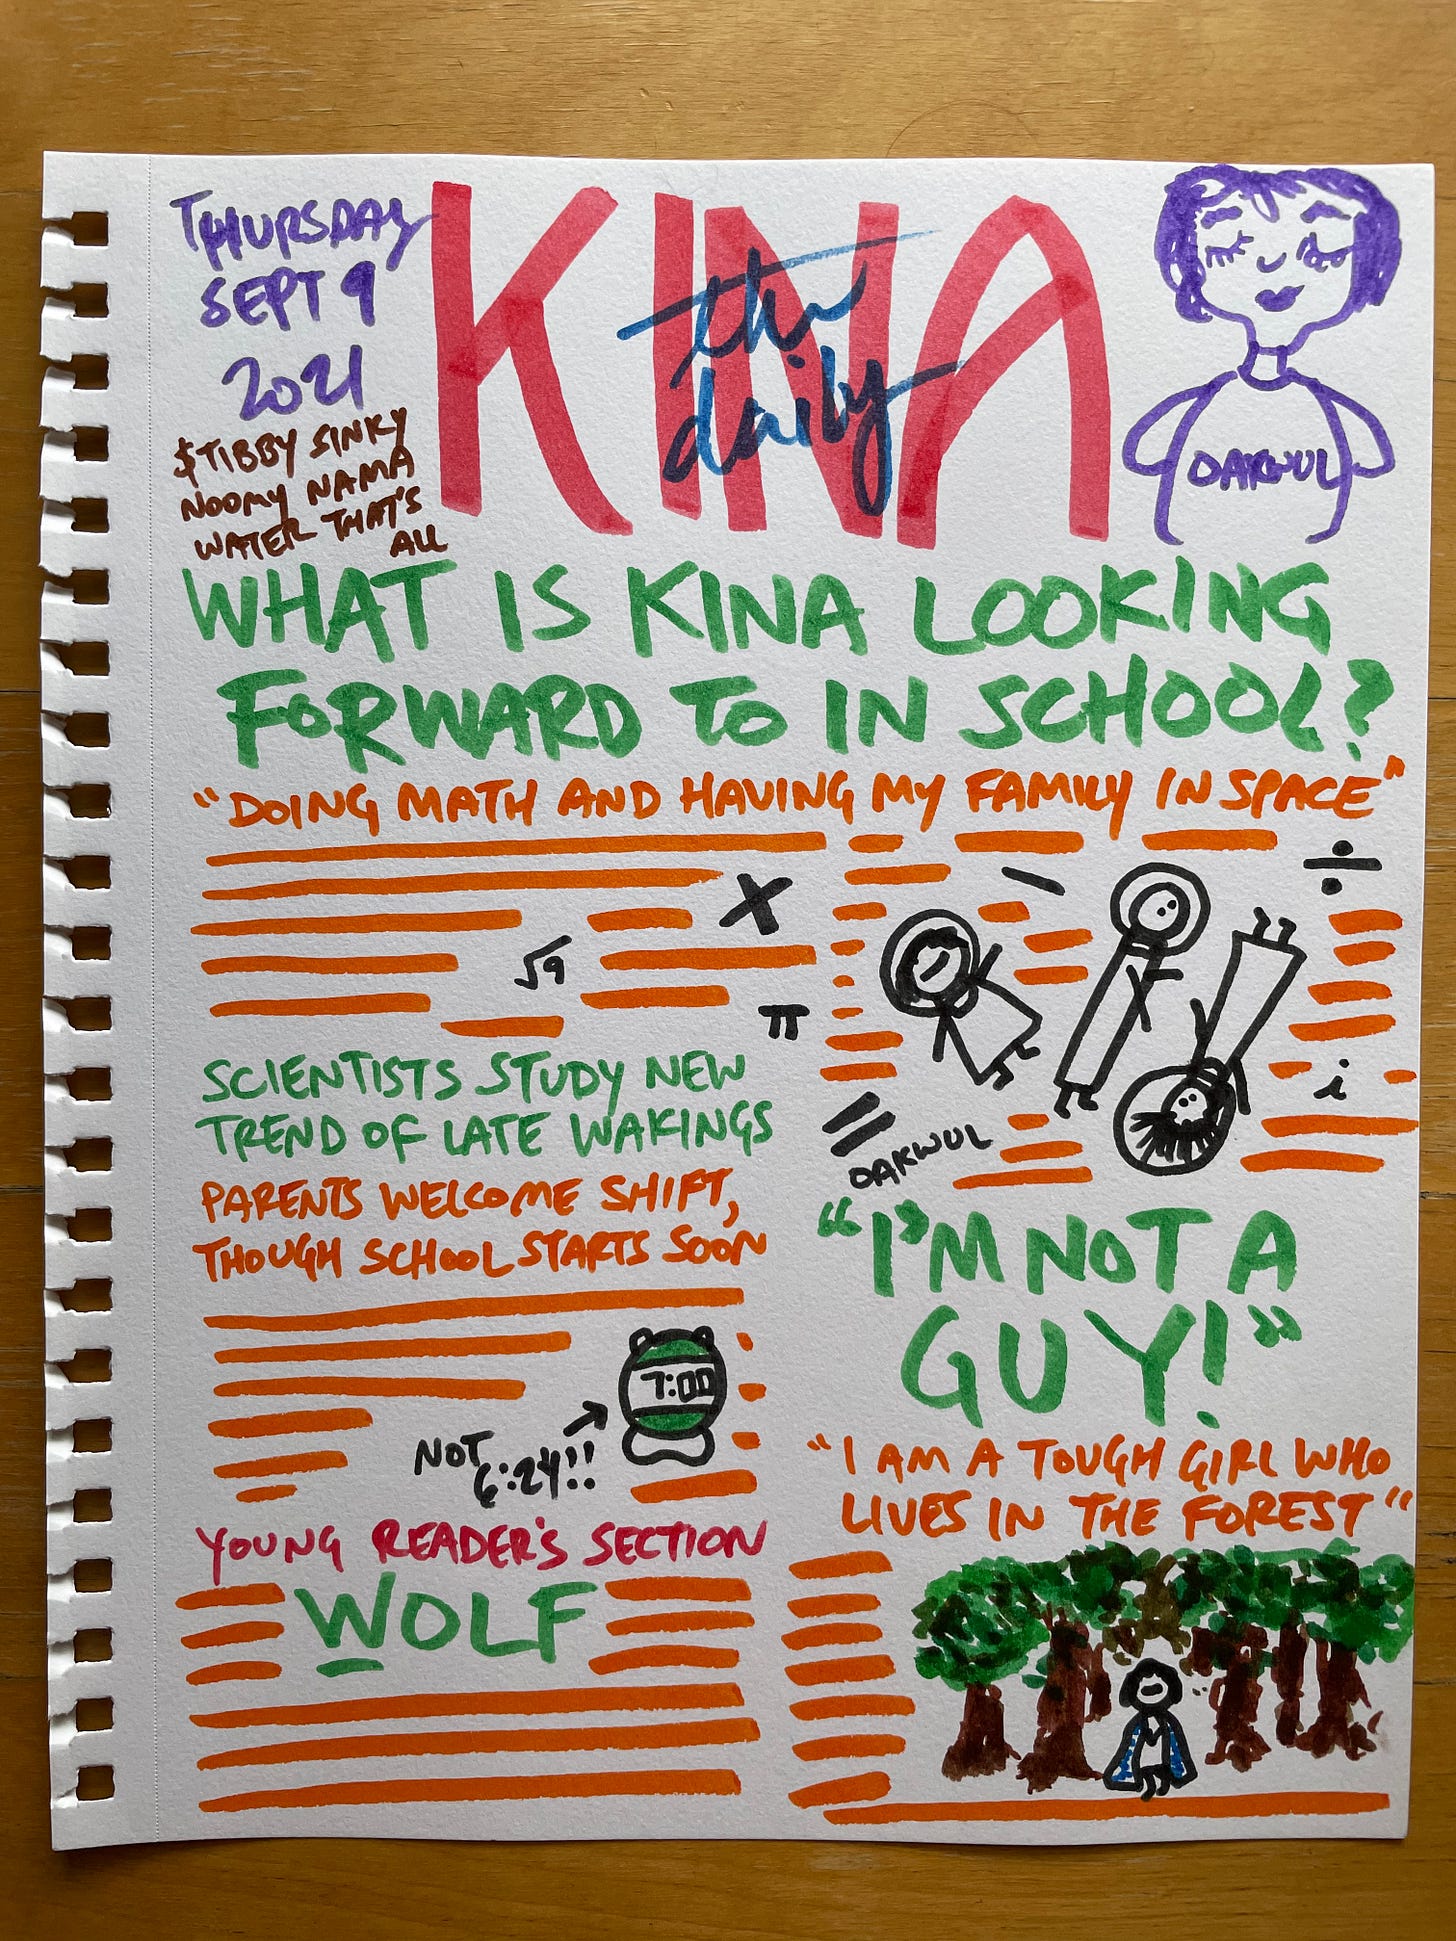 THURSDAY
SEPT 9
2021
$TIBBY SINKY
NOOMY NAMA
WATER THAT'S
ALL
KINA
the
daily
DAKWUL
WHAT IS KINA LOOKING
FORWARD TO IN SCHOOL?
"DOING MATH AND HAVING MY FAMILY IN SPACE"
×
√9
π
−
÷
=
i
DAKWUL
SCIENTISTS STUDY NEW
TREND OF LATE WAKINGS
PARENTS WELCOME SHIFT,
THOUGH SCHOOL STARTS SOON
7:00
NOT
6:24!!
YOUNG READER'S SECTION
WOLF
"I'M NOT A
GUY!"
"I AM A TOUGH GIRL WHO
LIVES IN THE FOREST"